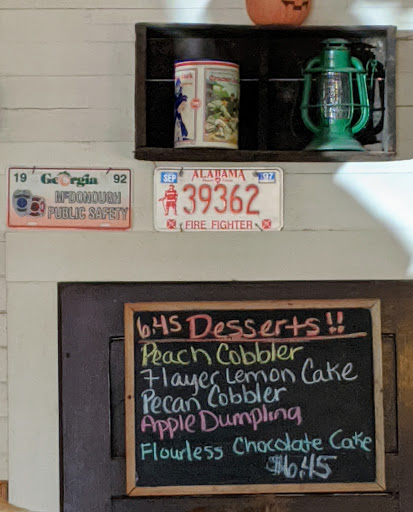 19 Georgia 92
McDONOUGH
PUBLIC SAFETY
SEP ALABAMA 97
39362
FIRE FIGHTER
6.45 Desserts!!
Peach Cobbler
7 layer Lemon Cake
Pecan Cobbler
Apple Dumpling
Flourless Chocolate Cake
$6.45